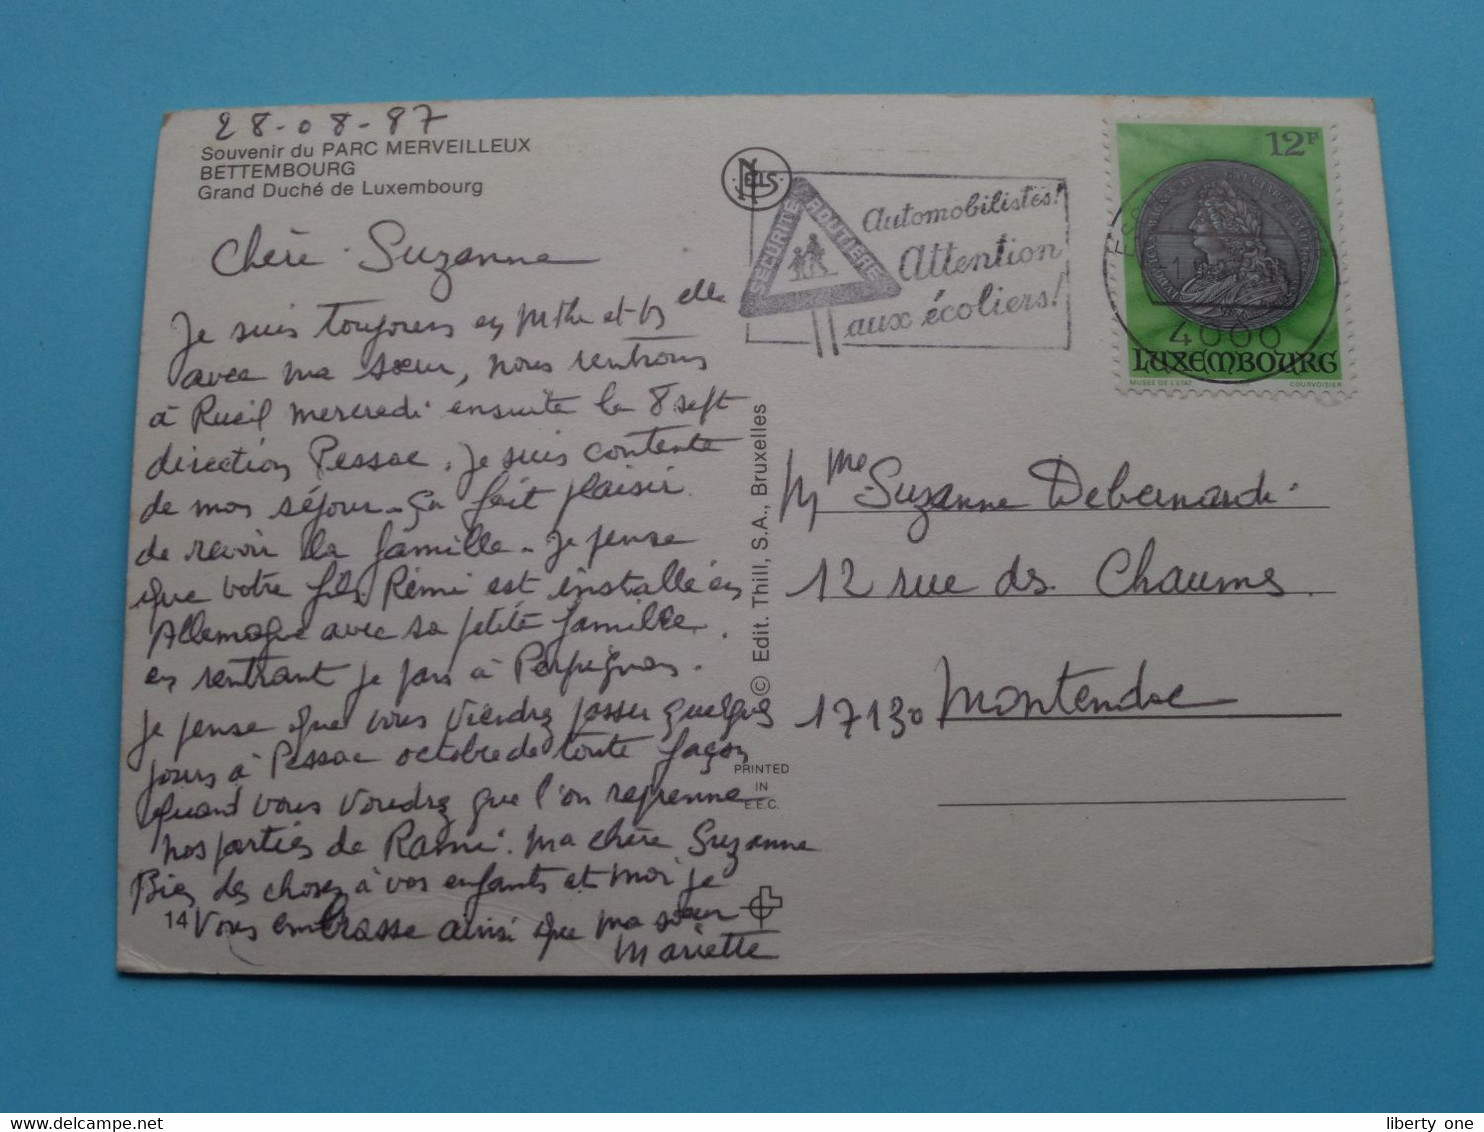 28-08-87
Souvenir du PARC MERVEILLEUX
BETTEMBOURG
Grand Duché de Luxembourg
Chère Suzanne
Je suis toujours en et
avec ma sœur, nous rentrons
à Rueil mercredi ensuite le 8 sept
direction Pessac. Je suis contente
de mon séjour. Ça fait plaisir
de revoir la famille. Je pense
que votre fils Rémi est installé en
Allemagne avec sa petite famille.
en rentrant je pars à Perpignan.
Je pense que vous viendrez passer quelques
jours à Pessac octobre de toute façon
quand vous voudrez que l'on reprenne
nos parties de Rami. Ma chère Suzanne
Bien des choses à vos enfants et moi je
vous embrasse ainsi que ma sœur
Mariette
14
NELS
SÉCURITÉ ROUTIÈRE
Automobilistes!
Attention
aux écoliers!
12F
4000
LUXEMBOURG
MUSÉE DE L'ÉTAT
COURVOISIER
© Edit. Thill, S.A., Bruxelles
PRINTED
IN
E.E.C.
Mme Suzanne Debernardi
12 rue des Chaumes
17130 Montendre
liberty one